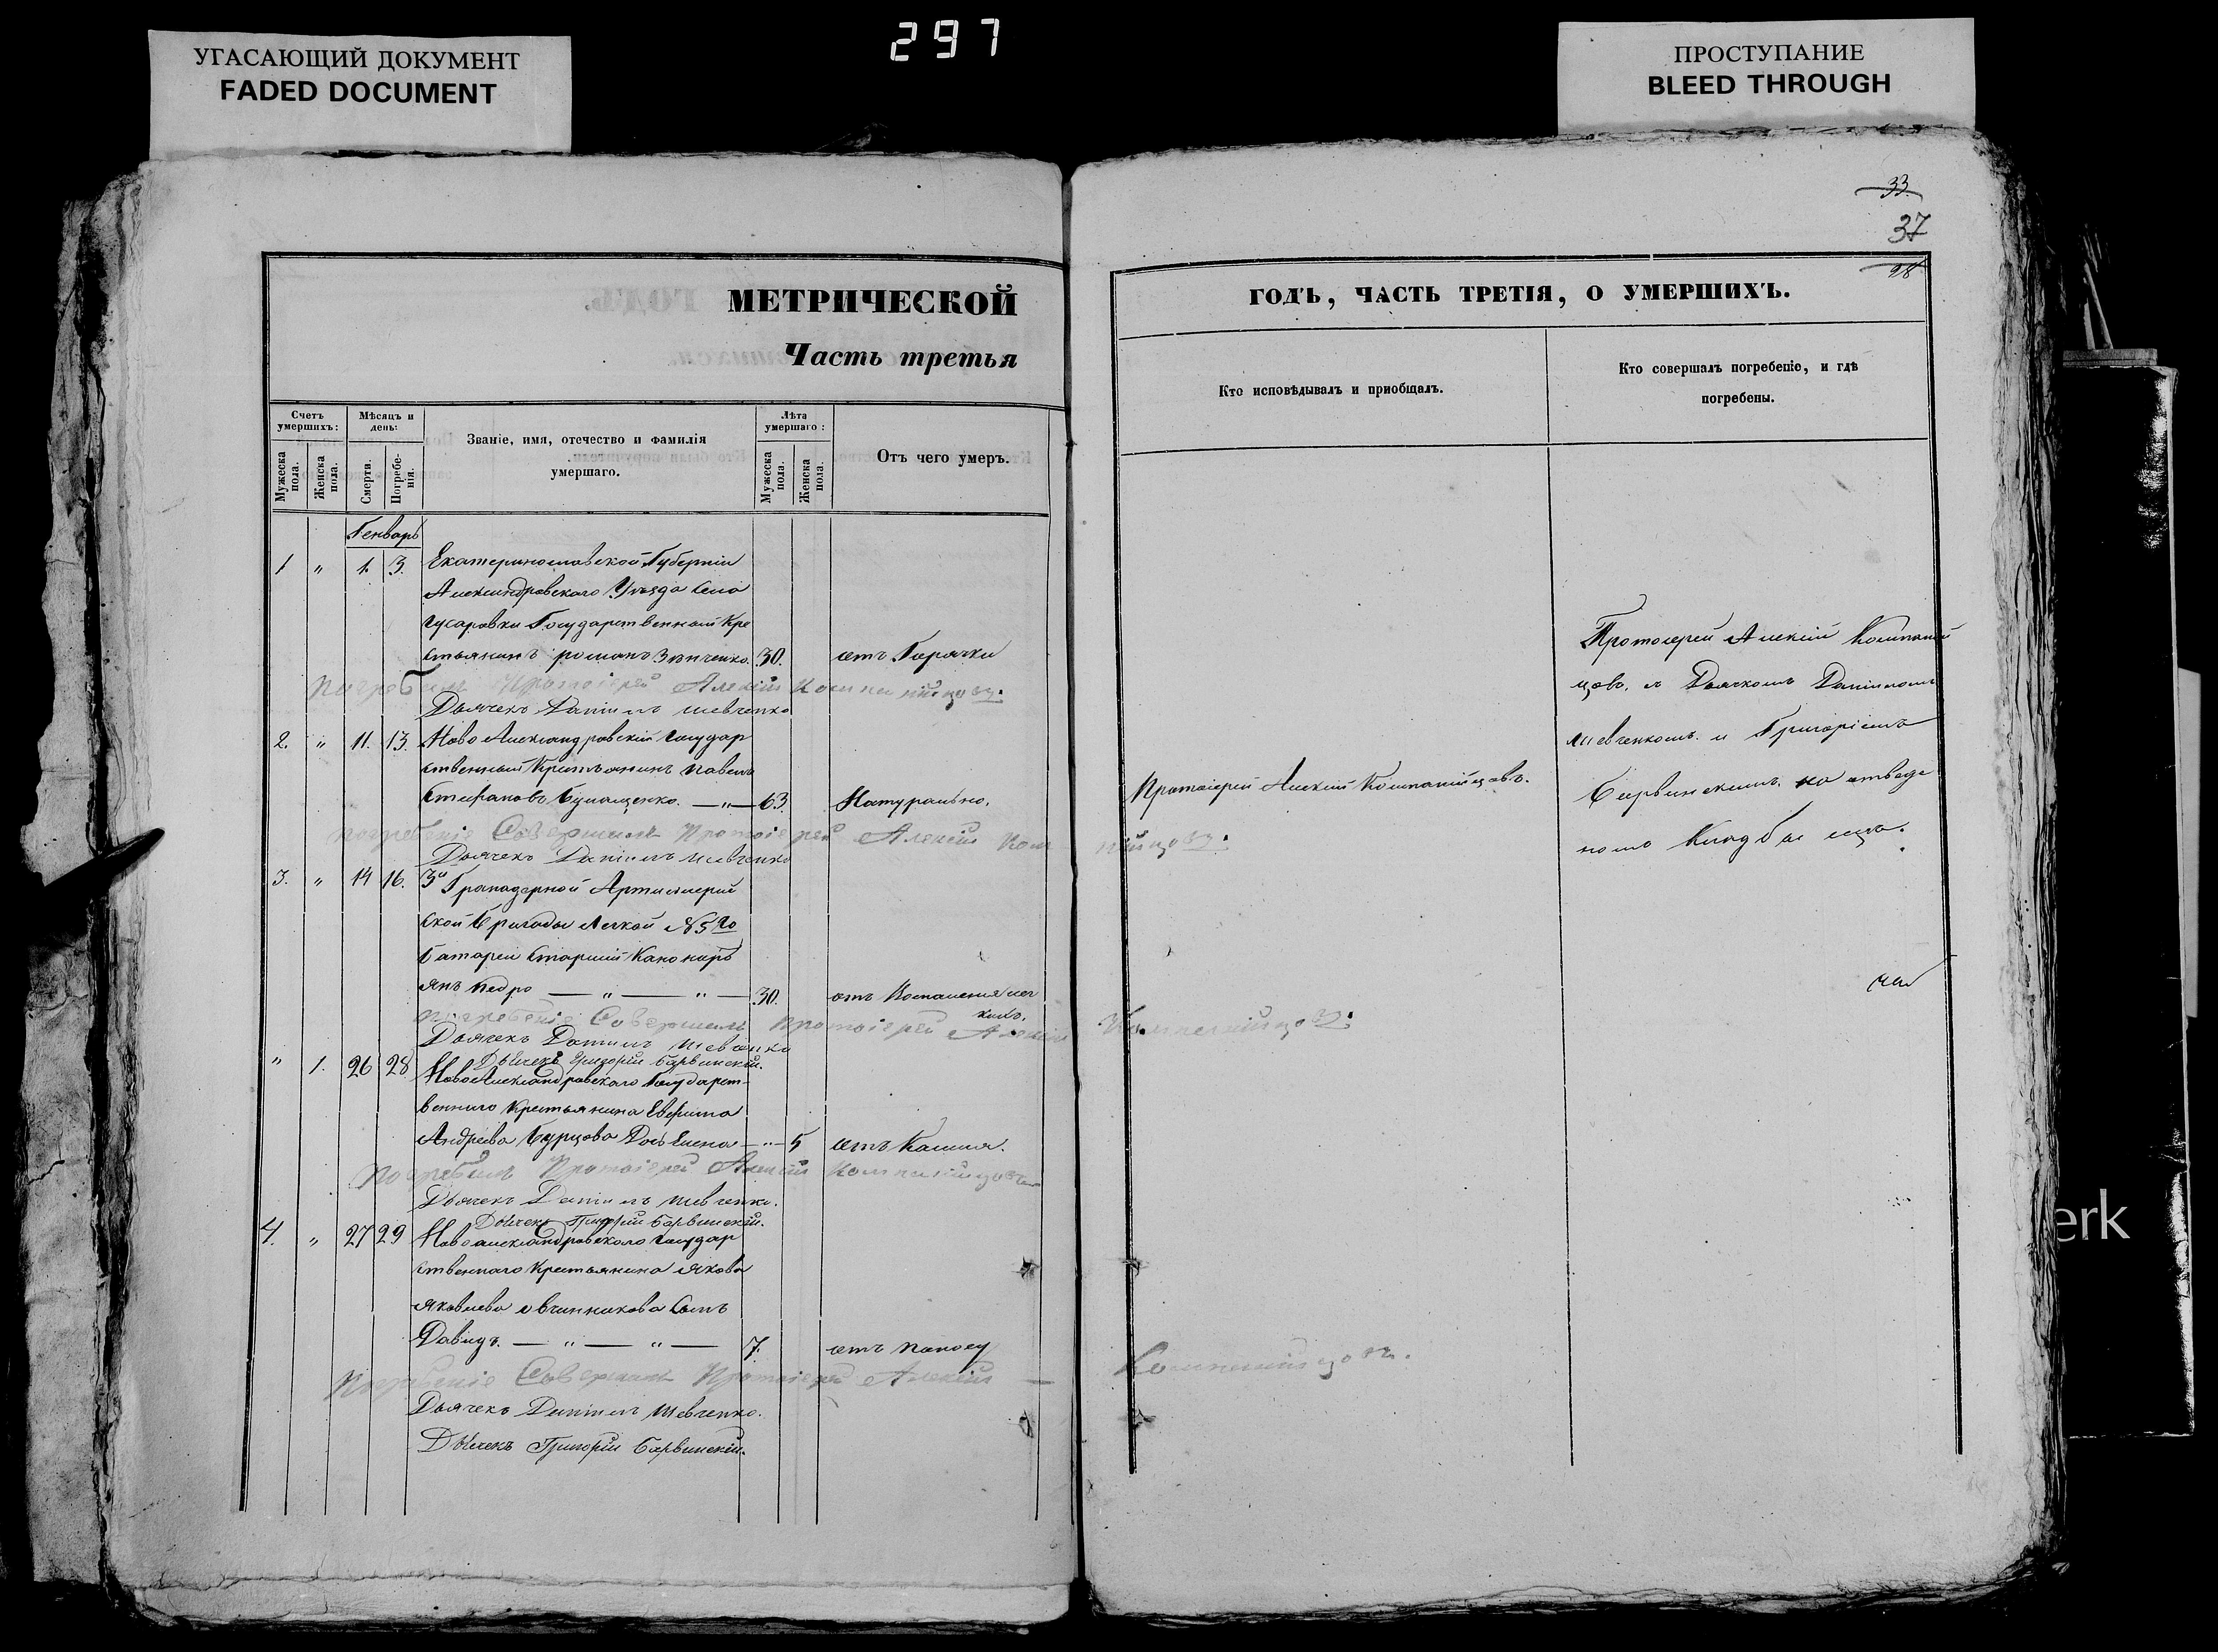 297
УГАСАЮЩИЙ ДОКУМЕНТ
FADED DOCUMENT
ПРОСТУПАНИЕ
BLEED THROUGH
МЕТРИЧЕСКОЙ
Часть третья
Счетъ умершихъ:
Мужеска пола.
Женска пола.
Мѣсяцъ и день:
Смерти.
Погребенія.
Званіе, имя, отечество и фамилія
умершаго.
Лѣта умершаго:
Мужеска пола.
Женска пола.
Отъ чего умеръ.
Генварь
1 " 1. 3. Екатеринославской Губерніи
Александровскаго Уѣзда Села
Гусаровки Государственный Кре
стьянинъ романъ Зинченко. 30. отъ Горячки
Погребалъ Протоіерей Алексій Компанійцовъ.
Дьячекъ Даніилъ Шевченко
2. " 11. 13. Ново Александровскій государ
ственный Крестьянинъ Павелъ
Стефановъ — " — 63 Натурально.
погребеніе Совершалъ Протоіерей Алексій Компанійцовъ.
Дьячекъ Даніилъ Шевченко
3. " 14 16. 3й Гранадерной Артилерій
ской бригады Легкой № 5го
батареи Старшій Канониръ
Янъ Педро — " — " — 30. отъ Воспаления лег
кихъ.
Погребеніе Совершалъ Протоіерей Алексій Компанійцовъ.
Дьячекъ Даніилъ Шевченко
Дьячекъ Григорій Барвинскій.
" 1. 26 28 Ново Александровскаго Государст-
веннаго Крестьянина Евфима
Андреева Бурцова Дочь Елена — " — 5 отъ Кашля.
Погребалъ Протоіерей Алексій Компанійцовъ
Дьячекъ Даніилъ Шевченко.
Дьячекъ Григорій Барвинскій.
4. " 27 29 Новоалександровскаго государ
ственнаго Крестьянина Якова
Яковлева Овчинникова Сынъ
Давидъ. — " — " — 7. отъ поносу
Погребеніе Совершалъ Протоіерей Алексій — Компанійцовъ.
Дьячекъ Даніилъ Шевченко.
Дьячекъ Григорій Барвинскій.
33
37
98
ГОДЪ, ЧАСТЬ ТРЕТІЯ, О УМЕРШИХЪ.
Кто исповѣдывалъ и приобщалъ.
Кто совершалъ погребеніе, и гдѣ
погребены.
Протоіерей Алексій Компанійцовъ.
Протоіерей Алексій Компаній
цовъ, съ Дьячкомъ Даніиломъ
Шевченкомъ и Григоріемъ
Барвинскимъ на отведе
номъ Кладбищѣ.
erk